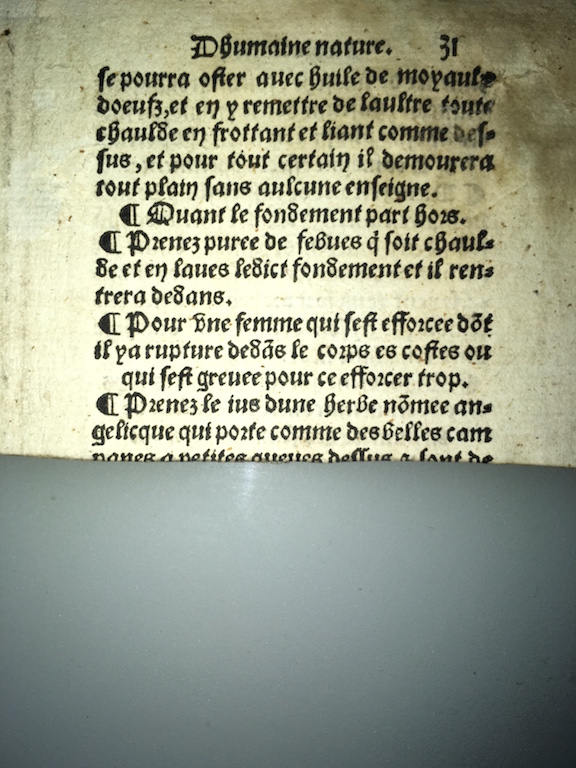 Dhumaine nature. 31
se pourra oster auec huile de moyaulx
doeufz, et en y remettre de laultre toute
chaulde en frottant et liant comme des-
sus, et pour tout certain il demourera
tout plain sans aulcune enseigne.
¶ Quant le fondement part hors.
¶ Prenez puree de febues q̃ soit chaul-
de et en laues ledict fondement et il ren-
trera dedans.
¶ Pour vne femme qui sest efforcee dõt
il ya rupture dedãs le corps es costes ou
qui sest greuee pour ce efforcer trop.
¶ Prenez le ius dune herbe nõmee an-
gelicque qui porte comme des belles cam
panes a petites queues dessus a sont de